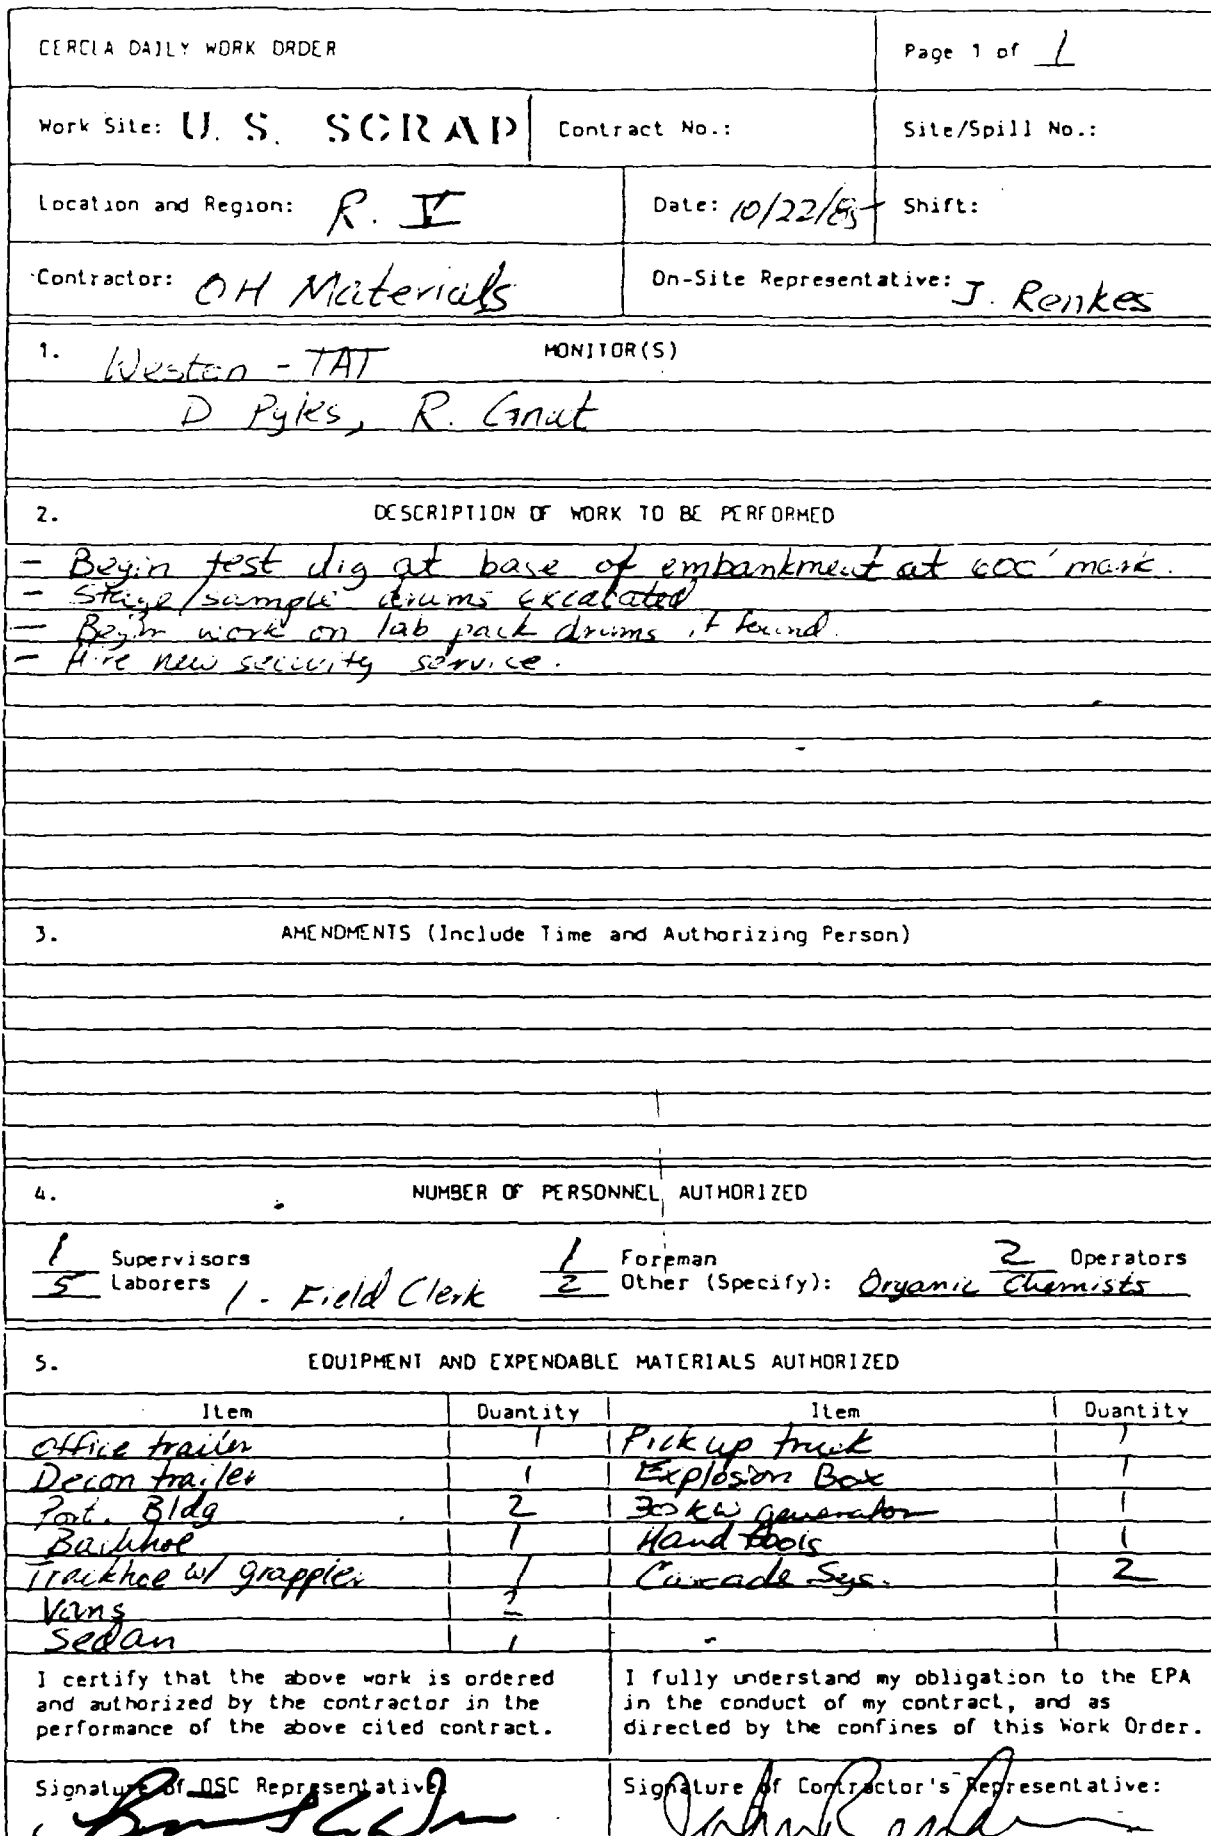 CERCLA DAILY WORK ORDER Page 1 of 1
Work Site: U. S. SCRAP Contract No.: Site/Spill No.:
Location and Region: R. V Date: 10/22/85 Shift:
Contractor: OH Materials On-Site Representative: J. Renkes
1. MONITOR(S)
Weston - TAT
D Pyles, R. Gnat
2. DESCRIPTION OF WORK TO BE PERFORMED
- Begin test dig at base of embankment at 600' mark.
- Stage/sample drums excavated
- Begin work on lab pack drums if found.
- Hire new security service.
3. AMENDMENTS (Include Time and Authorizing Person)
4. NUMBER OF PERSONNEL AUTHORIZED
1 Supervisors 1 Foreman 2 Operators
5 Laborers 1 - Field Clerk 2 Other (Specify): Organic Chemists
5. EQUIPMENT AND EXPENDABLE MATERIALS AUTHORIZED
Item Quantity Item Quantity
Office trailer 1 Pick up truck 1
Decon trailer 1 Explosion Box 1
Port. Bldg 2 30 kw generator 1
Backhoe 1 Hand tools 1
Trackhoe w/ grappler 1 Cascade Sys. 2
Vans 2
Sedan 1
I certify that the above work is ordered
and authorized by the contractor in the
performance of the above cited contract.
I fully understand my obligation to the EPA
in the conduct of my contract, and as
directed by the confines of this Work Order.
Signature of OSC Representative: Signature of Contractor's Representative: